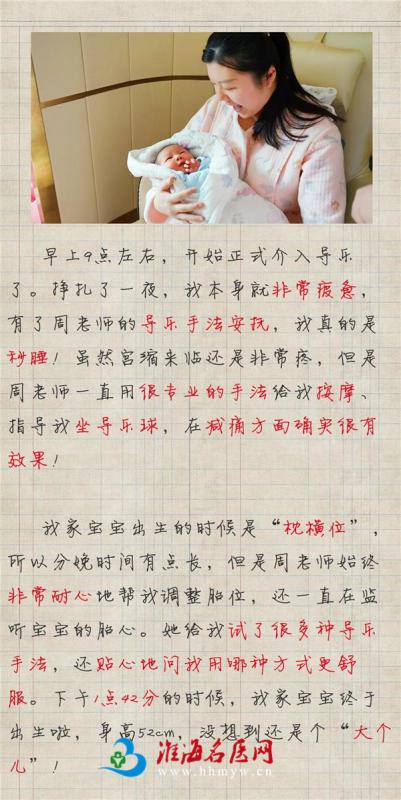 早上9点左右，开始正式介入导乐
了。挣扎了一夜，我本身就非常疲惫，
有了周老师的导乐手法安抚，我真的是
秒睡！虽然宫缩来临还是非常疼，但是
周老师一直用很专业的手法给我按摩、
指导我坐导乐球，在减痛方面确实很有
效果！
我家宝宝出生的时候是“枕横位”，
所以分娩时间有点长，但是周老师始终
非常耐心地帮我调整胎位，还一直在监
听宝宝的胎心。她给我试了很多种导乐
手法，还贴心地问我用哪种方式更舒
服。下午1点42分的时候，我家宝宝终于
出生啦，身高52cm，没想到还是个“大个
儿”！
淮海名医网
www.hhmyw.cn